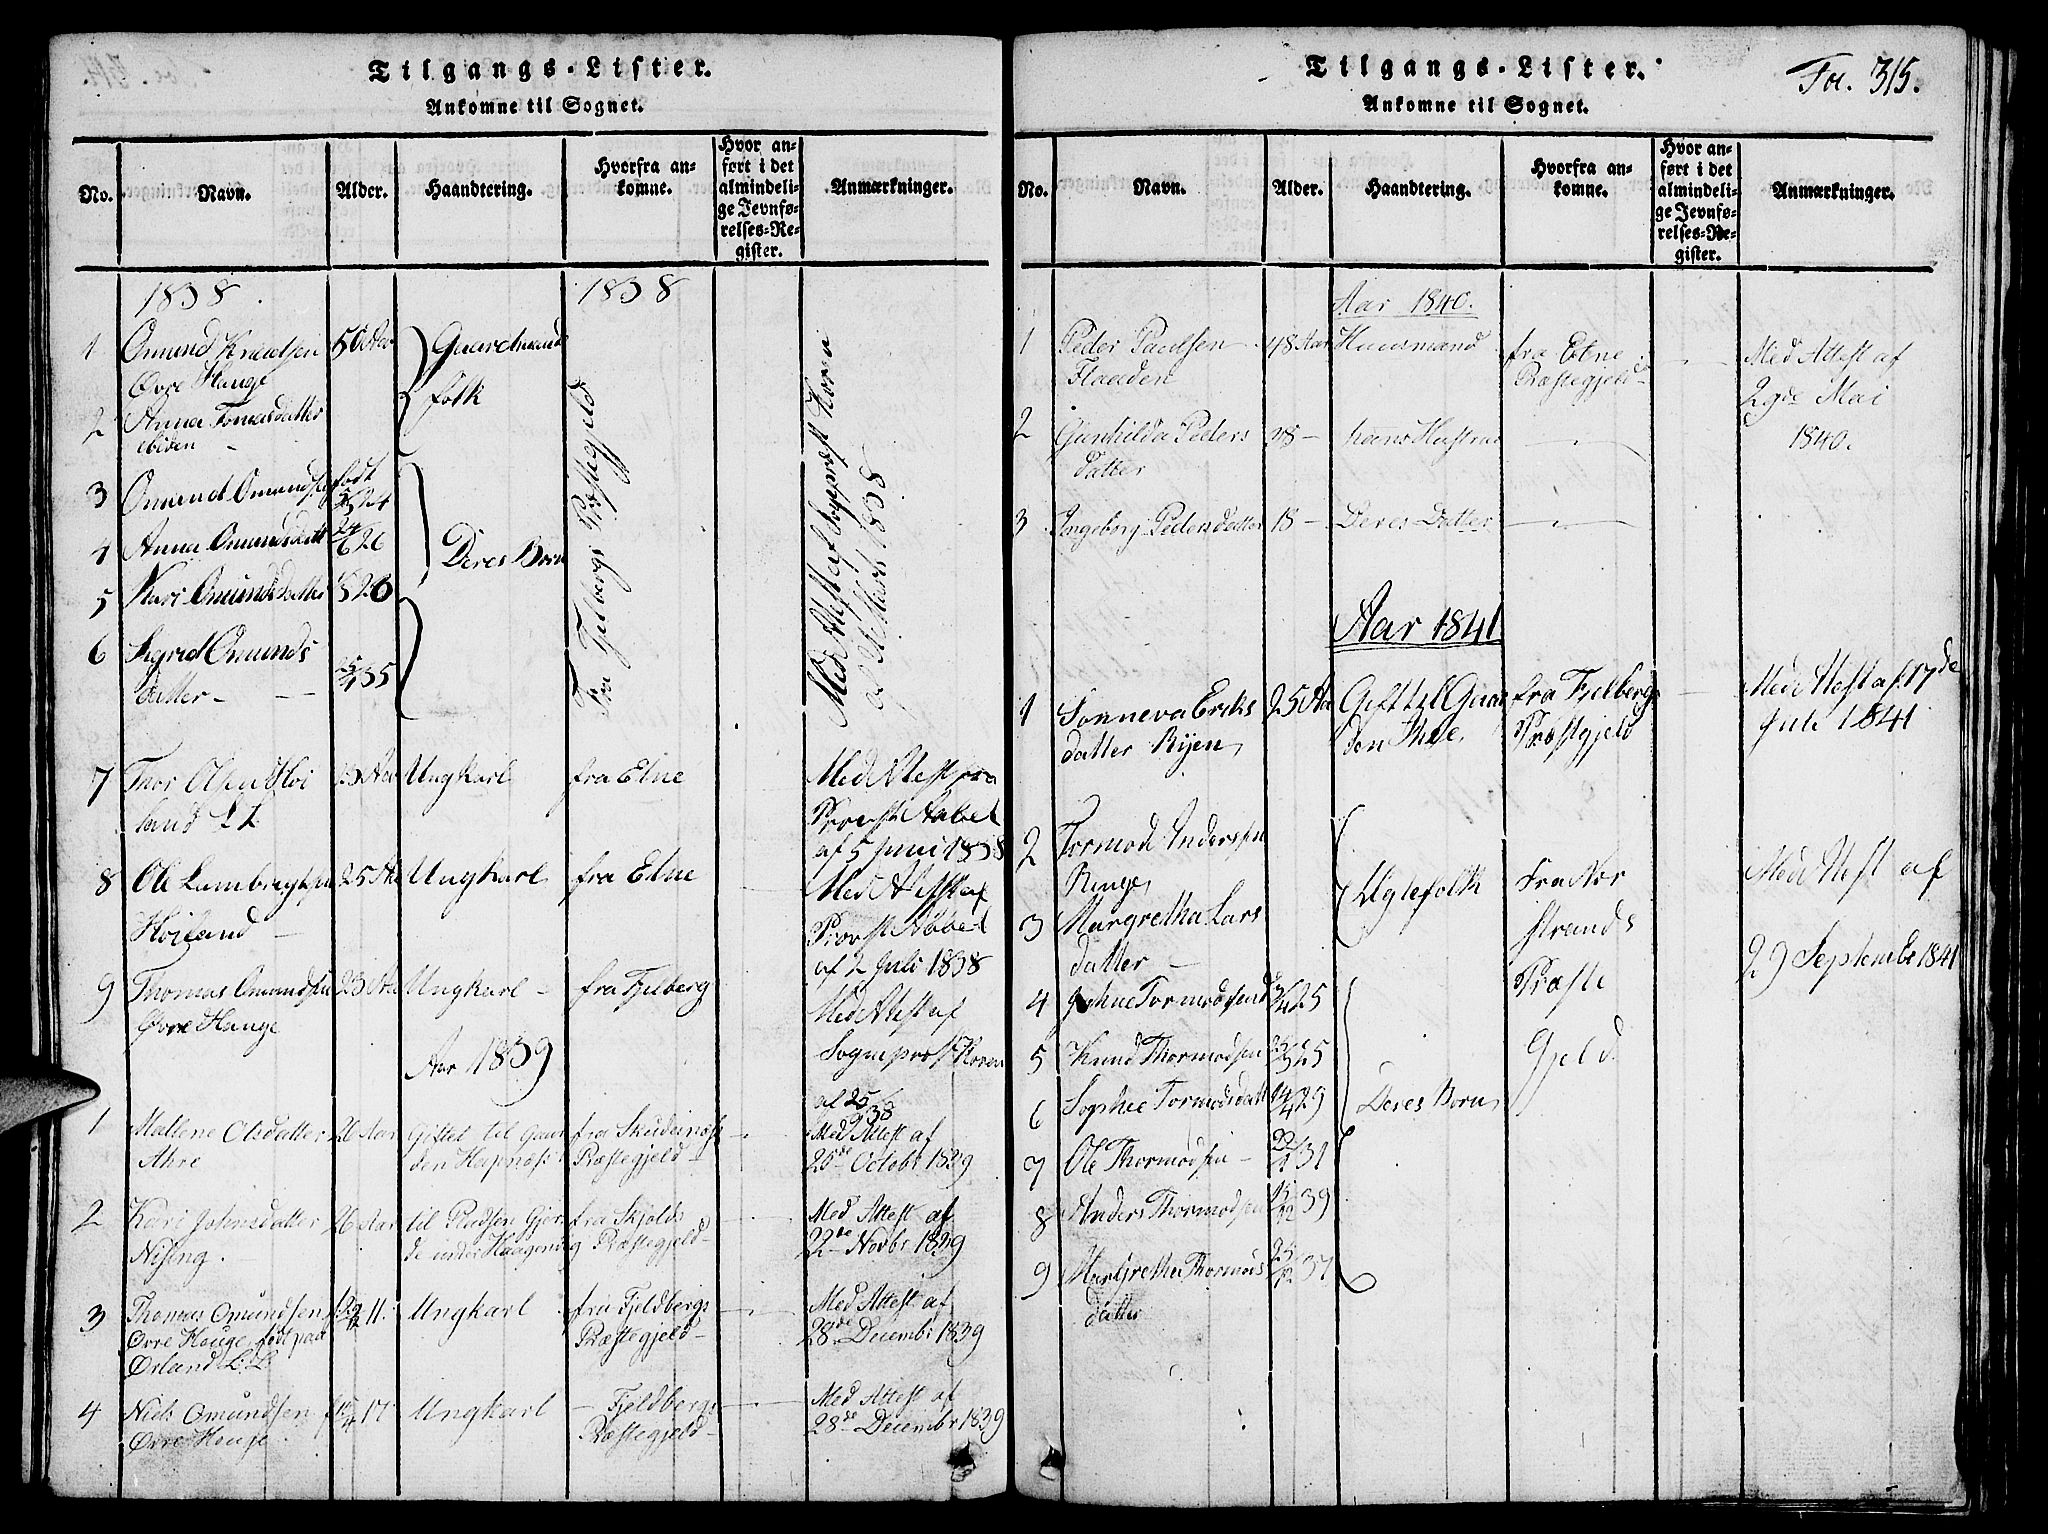 Tilgangs-Lister.
Ankomne til Sognet.
No.
Navn.
Alder.
Haandtering.
Hvorfra an-
komne.
Hvor an-
ført i det
almindeli-
ge Jevnfø-
relses-Re-
gister.
Anmærkninger.
1838.
1838
1
Omund Knudsen
Øvre Hauge
50 Aar
Gaardmands
folk
2
Anna Tomasdatter
ibiden
3
Omund Omundsen
født
24
4
Anna Omundsdatt
24/6 26
5
Kari Omundsdatter
Deres Børn
6
Sigrid Omunds
datter
35
Fra Fjelbergs Præstegjeld
Med Attest af Sognepræst Koren
af Marts 1838
7
Thor Olsen Høi
land
Aar
Ungkarl
fra Etne
Med Attest fra
Provst Aabel
af 5 Juni 1838
8
Ole Lambregtsen
Høiland
25 Aar
Ungkarl
fra Etne
Med Attest af
Provst Aabel
af 2 Juli 1838
9
Thomas Omundsen
Øvre Hauge
23 Aar
Ungkarl
fra Fjelberg
Med Attest af
Sognepræst Koren
af 25
9 38
Aar 1839
1
Mallene Olsdatter
Ahre
26 Aar
Giftet til Gaar
den
fra Skudesnæs
Præstegjeld
Med Attest af
25de Octobr 1839
2
Kari Johnsdatter
Nising.
26 Aar
til Pladsen Gjer
de under Haagenvig
fra Skjolds
Præstegjeld
Med Attest af
22de Novbr 1839
3
Thomas Omundsen
Øvre Hauge født paa
Ørland
11.
Ungkarl
fra Fjeldbergs
Præstegjeld
Med Attest af
28de Decembr 1839
4
Niels Omundsen
Øvre Hauge
17
Ungkarl
Fjeldbergs
Præstegjeld
Med Attest af
28de Decembr 1839
Tilgangs-Lister.
Ankomne til Sognet.
Fol. 315.
No.
Navn.
Alder.
Haandtering.
Hvorfra an-
komne.
Hvor an-
ført i det
almindeli-
ge Jevnfø-
relses-Re-
gister.
Anmærkninger.
Aar 1840.
1
Peder Paulsen
Flaaden
48 Aar
Huusmand
fra Etne
Præstegjeld
Med Attest af
29de Mai
1840.
2
Gunhilda Peders
datter
48
hans Hustrue
3
Ingeborg Pedersdatter
18
Deres Datter
Aar 1841
1
Sønneva Eriks
datter Rijen
25 Aar
Gift til Gaar
den
fra Fjelbergs
Præstgjeld
Med Attest af 17de
Juli 1841
2
Tormod Anderssen
Ringe
3
Margretha Lars
datter
fra Nor
strands
Præste
Gjeld
Med Attest af
29 September 1841
4
Johne Tormodsen
25
5
Knud Thormodsen
25
6
Sophie Tormodsdatt
14/4 29
Deres Børn
7
Ole Thormodsen
22/1 31
8
Anders Thormodsen
15/12 39
9
Margretha Thormods
datter
25/12 37